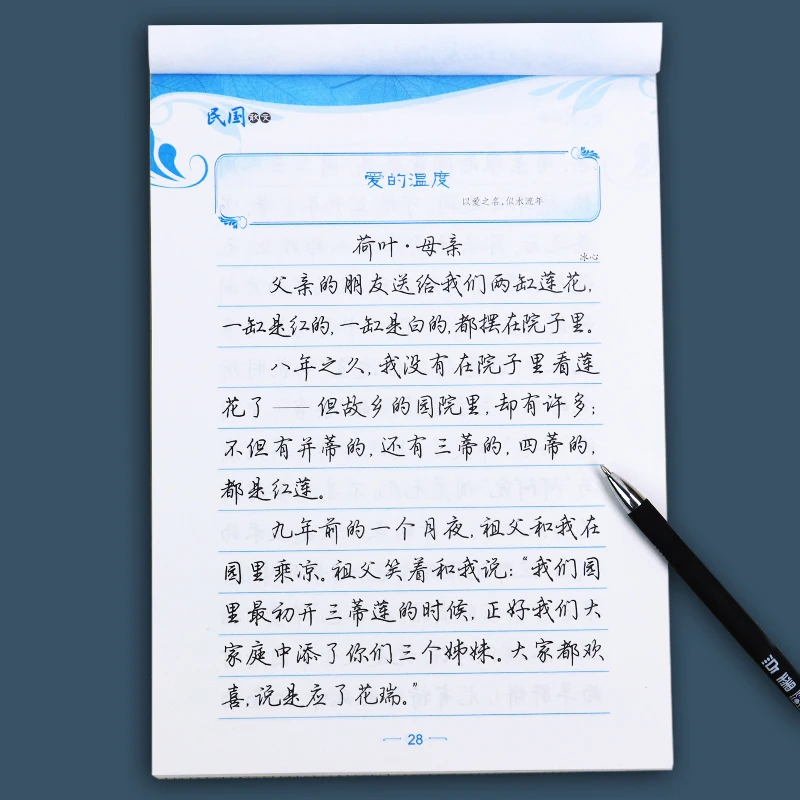 民国散文
爱的温度
以爱之名,似水流年
荷叶·母亲
冰心
父亲的朋友送给我们两缸莲花,
一缸是红的,一缸是白的,都摆在院子里。
八年之久,我没有在院子里看莲
花了——但故乡的园院里,却有许多;
不但有并蒂的,还有三蒂的,四蒂的,
都是红莲。
九年前的一个月夜,祖父和我在
园里乘凉。祖父笑着和我说:“我们园
里最初开三蒂莲的时候,正好我们大
家庭中添了你们三个姊妹。大家都欢
喜,说是应了花瑞。”
28